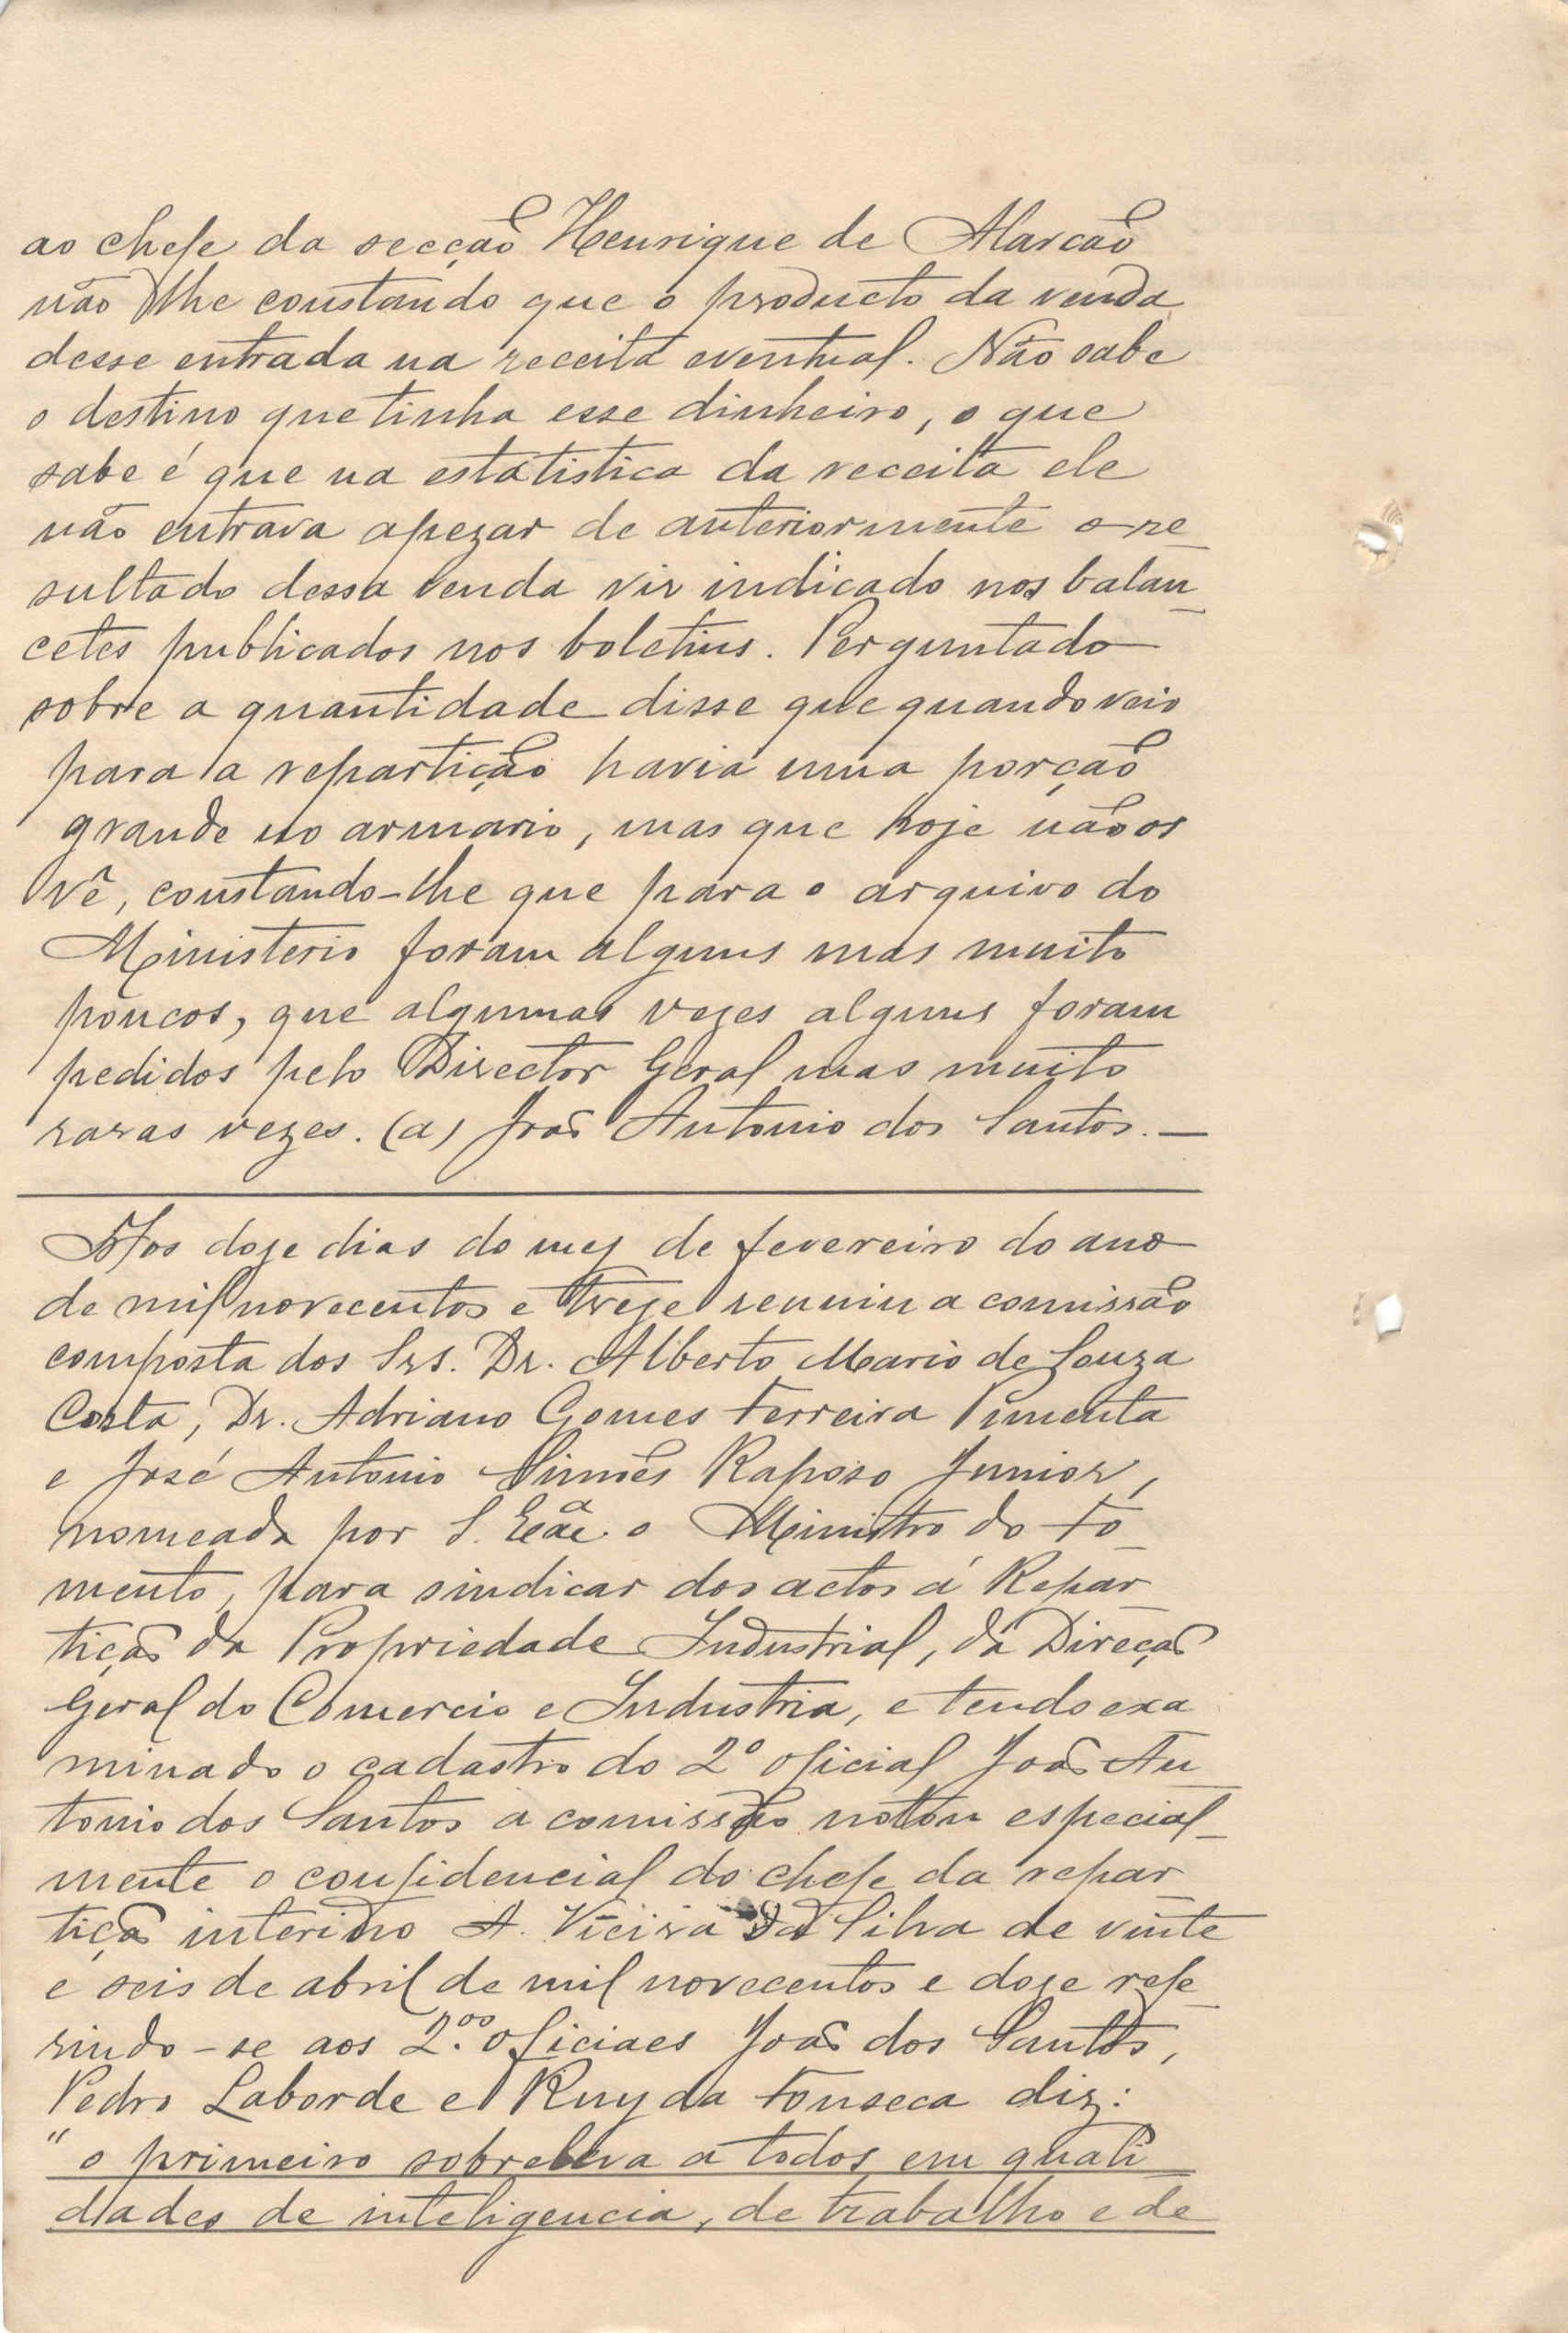 ao chefe da secção Henrique de Alarcão
não lhe constando que o producto da venda
desse entrada na receita eventual. Não sabe
o destino que tinha esse dinheiro, o que
sabe é que na estatistica da receita ele
não entrava apezar de anteriormente o re_
sultado dessa venda vir indicado nos balan_
cetes publicados nos boletins. Perguntado
sobre a quantidade disse que quando veio
para a repartição havia uma porção
grande no armario, mas que hoje não os
vê, constando-lhe que para o arquivo do
Ministerio foram alguns mas muito
poucos, que algumas vezes alguns foram
pedidos pelo Director Geral mas muito
raras vezes. (a) João Antonio dos Santos. —
Aos doze dias do mez de fevereiro do ano
de mil novecentos e treze reuniu a comissão
composta dos Srs. Dr. Alberto Mario de Souza
Costa, Dr. Adriano Gomes Ferreira Pimenta
e José Antonio Simões Raposo Junior,
nomeada por S. Exª. o Ministro do Fo_
mento, para sindicar dos actos á Repar_
tição da Propriedade Industrial, da Direcção
Geral do Comercio e Industria, e tendo exa
minado o cadastro do 2º oficial João An_
tonio dos Santos a comissão notou especial_
mente o confidencial do chefe da repar_
tição interino A. Vieira da Silva de vinte
e seis de abril de mil novecentos e doze refe_
rindo-se aos 2.ºº oficiaes João dos Santos,
Pedro Laborde e Ruy da Fonseca diz:
"o primeiro sobreleva a todos em quali_
dades de inteligencia, de trabalho e de